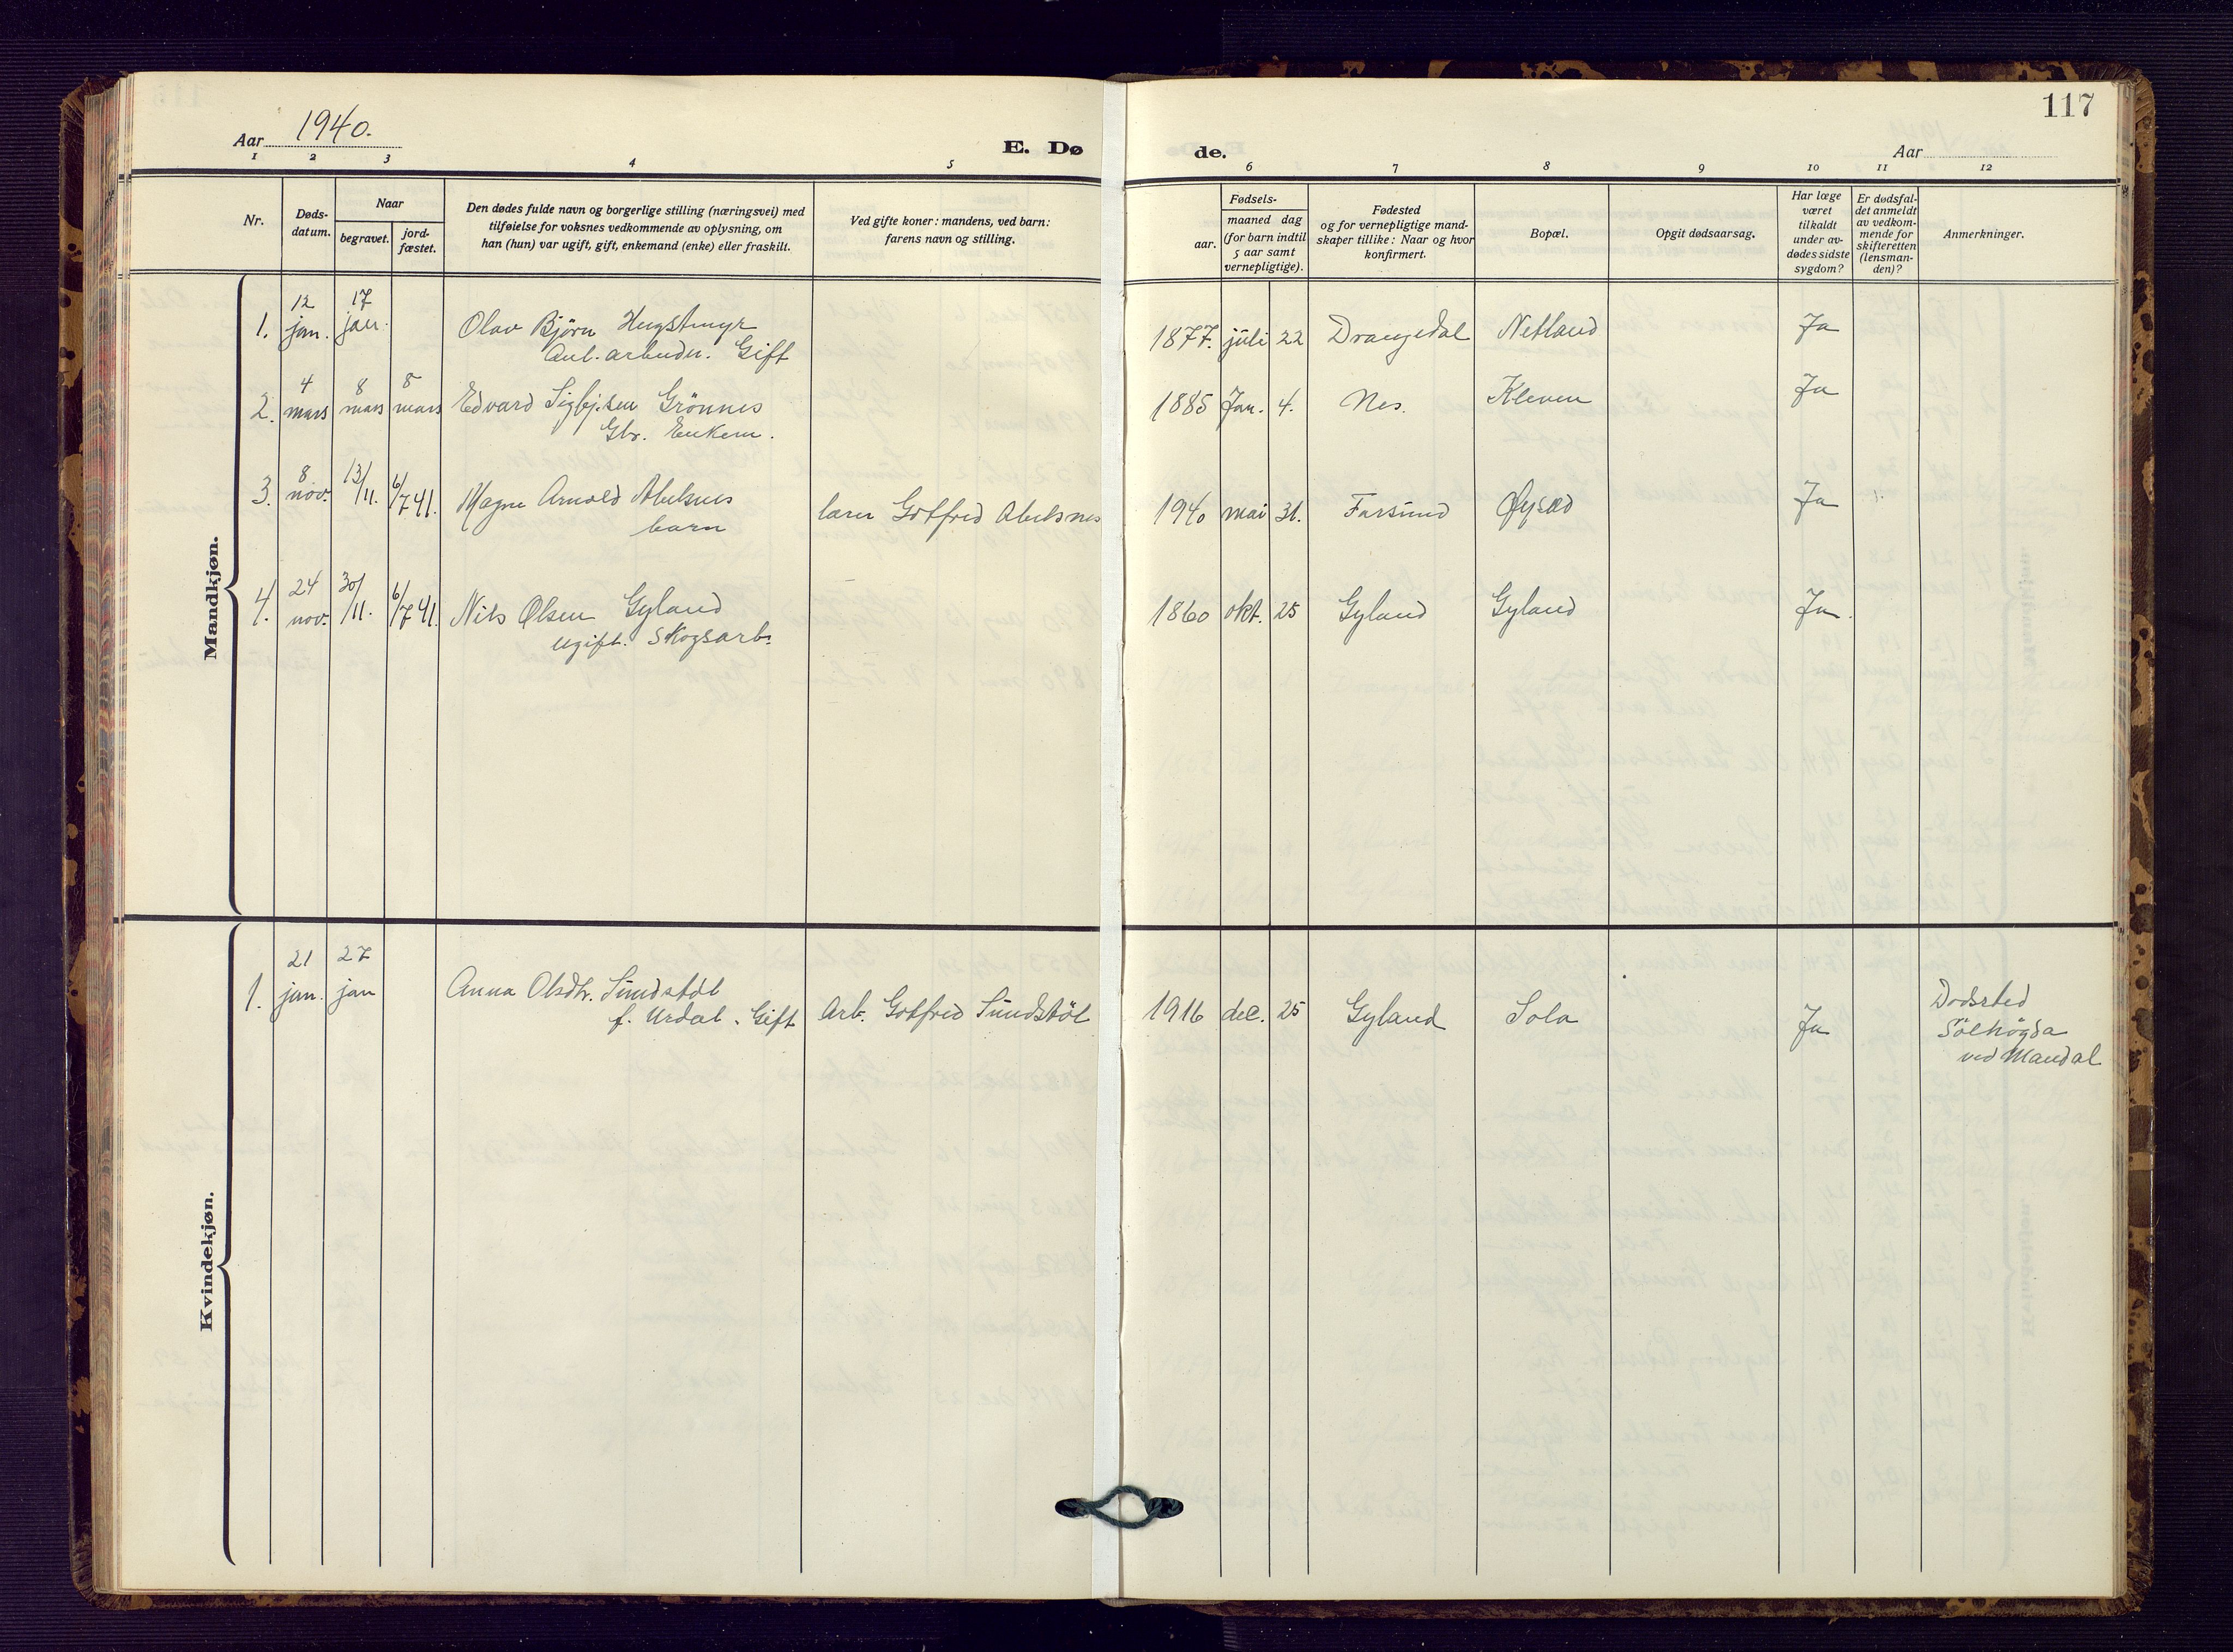 117
Aar 1940.
E. Dø
de.
Aar
1 2 3 4 5 6 7 8 9 10 11 12
Nr.
Døds-
datum.
Naar
begravet.
jord-
fæstet.
Den dødes fulde navn og borgerlige stilling (næringsvei) med
tilføielse for voksnes vedkommende av oplysning, om
han (hun) var ugift, gift, enkemand (enke) eller fraskilt.
Ved gifte koner: mandens, ved barn:
farens navn og stilling.
Fødsels-
aar.
maaned dag
(for barn indtil
5 aar samt
vernepligtige).
Fødested
og for vernepligtige mand-
skaper tillike: Naar og hvor
konfirmert.
Bopæl.
Opgit dødsaarsag.
Har læge
været
tilkaldt
under av-
dødes sidste
sygdom?
Er dødsfal-
det anmeldt
av vedkom-
mende for
skifteretten
(lensman-
den)?
Anmerkninger.
Mandkjøn.
12 17
1. jan. jan. Olav Bjørn 1877. juli 22 Drangedal Netland Ja
Gift
4 8 8
2. mars mars mars Edvard Grönnes 1885 Jan. 4. Nes. Kleven Ja
Gbr. Enkem.
8 13/11. 6/7 41.
3. nov. Magne Arnold Abelsnes lærer Gotfred Abelsnes 1940 mai 31. Farsund Ja
barn
24 30/11. 6/7 41.
4. nov. Nils Olsen Gyland 1860 okt. 25 Gyland Gyland Ja.
ugift. Skogsarb.
Kvindekjøn.
21 27
1. jan. jan Anna Olsdtr. Sundstöl Arb. Gotfred Sundstöl 1916 dec. 25 Gyland Sola Ja Dødssted
f. Urdal. Gift Sölhögda
ved Mandal